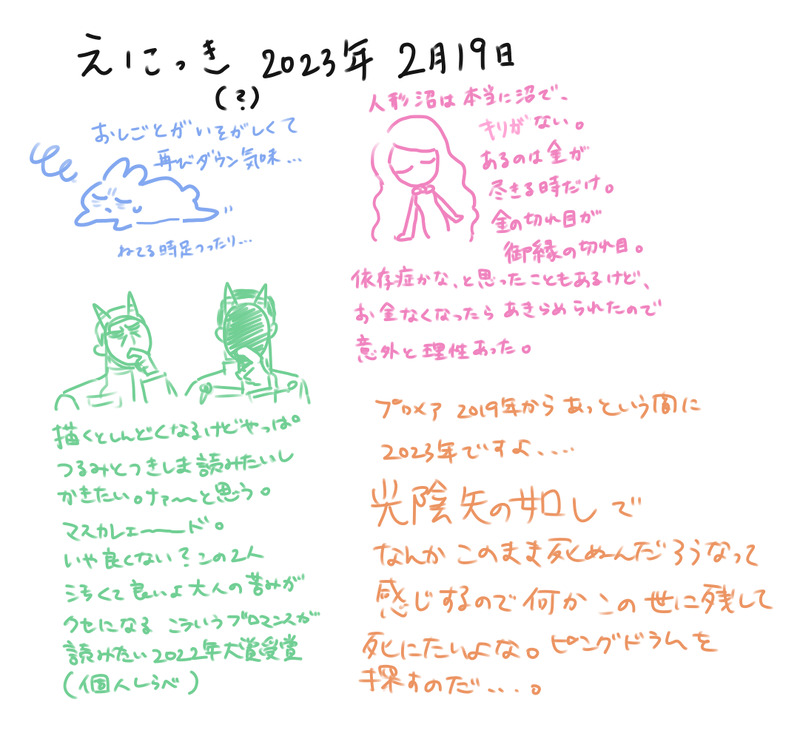 えにっき 2023年 2月19日
(?)
おしごとがいそがしくて
再びダウン気味…
ねてる時足つったり…
人形沼は本当に沼で、
キリがない。
あるのは金が
尽きる時だけ。
金の切れ目が
御縁の切れ目。
依存症かな、と思ったこともあるけど、
お金なくなったらあきらめられたので
意外と理性あった。
描くとしんどくなるけどやっぱ。
つるみとつきしま読みたいし
かきたい。ナァ〜〜と思う。
マスカレェ――ド。
いや良くない?この2人
汚くて良いよ大人の苦みが
クセになる こういうブロマンスが
読みたい2022年大賞受賞
(個人しらべ)
プロメア 2019年からあっという間に
2023年ですよ....
光陰矢の如しで
なんか このまま死ぬんだろうなって
感じするので何かこの世に残して
死にたいよな。ピングドラムを
探すのだ....。